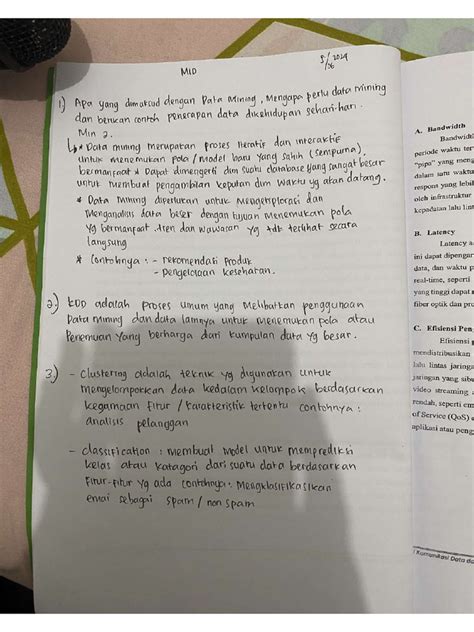 MID
5/06 2024
1) Apa yang dimaksud dengan Data Mining, Mengapa perlu data mining
dan berikan contoh penerapan data dikehidupan sehari-hari.
Min 2.
↳ * Data mining merupakan proses iteratif dan interaktif
untuk menemukan pola / Model baru yang sahih (sempurna),
bermanfaat & dapat dimengerti dlm suatu database yang sangat besar
untuk membuat pengambilan keputan dlm waktu yg akan datang.
* Data mining diperlukan untuk Mengeksplorasi dan
Menganalisis data besar dengan tujuan menemukan pola
yg bermanfaat, tren dan wawasan yg tdk terlihat secara
langsung
* Contohnya : - rekomendasi produk
- pengelolaan kesehatan.
2.) KDD adalah proses umum yang melibatkan penggunaan
Data mining dan data lainnya untuk menemukan pola atau
Penemuan yang berharga dari kumpulan data yg besar.
3.) - Clustering adalah teknik yg digunakan untuk
mengelompokkan data kedalam kelompok berdasarkan
kegamaan fitur / karakteristik tertentu contohnya :
analisis pelanggan
- classification : membual model untuk memprediksi
kelas atau katagori dari suatu data berdasarkan
Fitur-fitur yg ada contohnya : Mengklasifikasikan
emai sebagai spam / non spam
A. Bandwidth
Bandwidt
periode waktu ter
"pipa" yang meng
dalam satu waktu
respons yang lebil
oleh infrastruktur
kepadatan lalu lint
B. Latency
Latency a
ini dapat dipengar
data, dan waktu p
real-time, seperti
yang tinggi dapat
fiber optik dan pro
C. Efisiensi Pen
Efisiensi
mendistribusikan
lalu lintas jaringa
jaringan yang sibu
video streaming
rendah, seperti em
of Service (QoS)
aplikasi atau peng
Komunikasi Data da